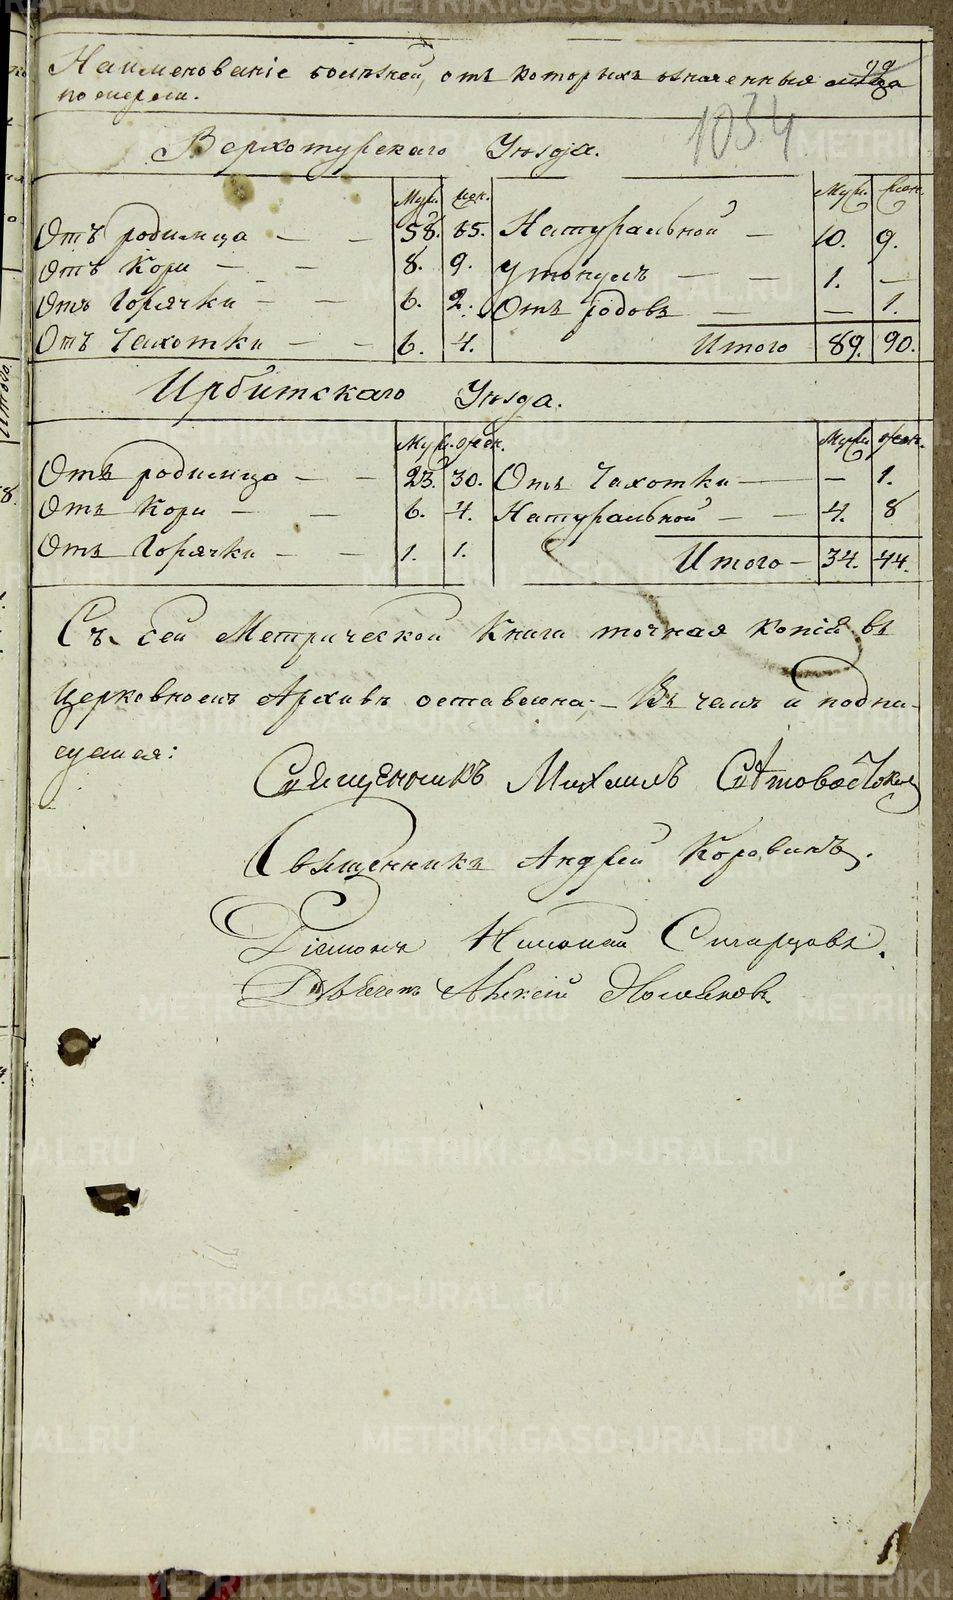 Наименованіе болѣзней, отъ которыхъ означенныя лица
померли.
99
1034
Верхотурскаго Уѣзда.
Муж. жен. Муж. жен.
Отъ родимца — — 58. 65. Натуральной — 10. 9.
Отъ Кори — — 8. 9. Утонулъ — — 1. —
Отъ Горячки — — 6. 2. Отъ родовъ — — 1.
Отъ Чахотки — — 6. 4. Итого 89. 90.
Ирбитскаго Уѣзда.
Муж. жен. Муж. жен.
Отъ родимца — — 23. 30. Отъ Чахотки — — 1.
Отъ Кори — — 6. 4. Натуральной — — 4. 8
Отъ Горячки — — 1. 1. Итого — 34. 44.
Съ сей Метрической Книги точная копія въ
Церковномъ Архивѣ оставлена; — Въ чемъ и подпи-
суемся:
Священникъ Михаилъ
Священникъ Андрей Коровинъ.
Діаконъ Николай
Алексій
METRIKI.GASO-URAL.RU